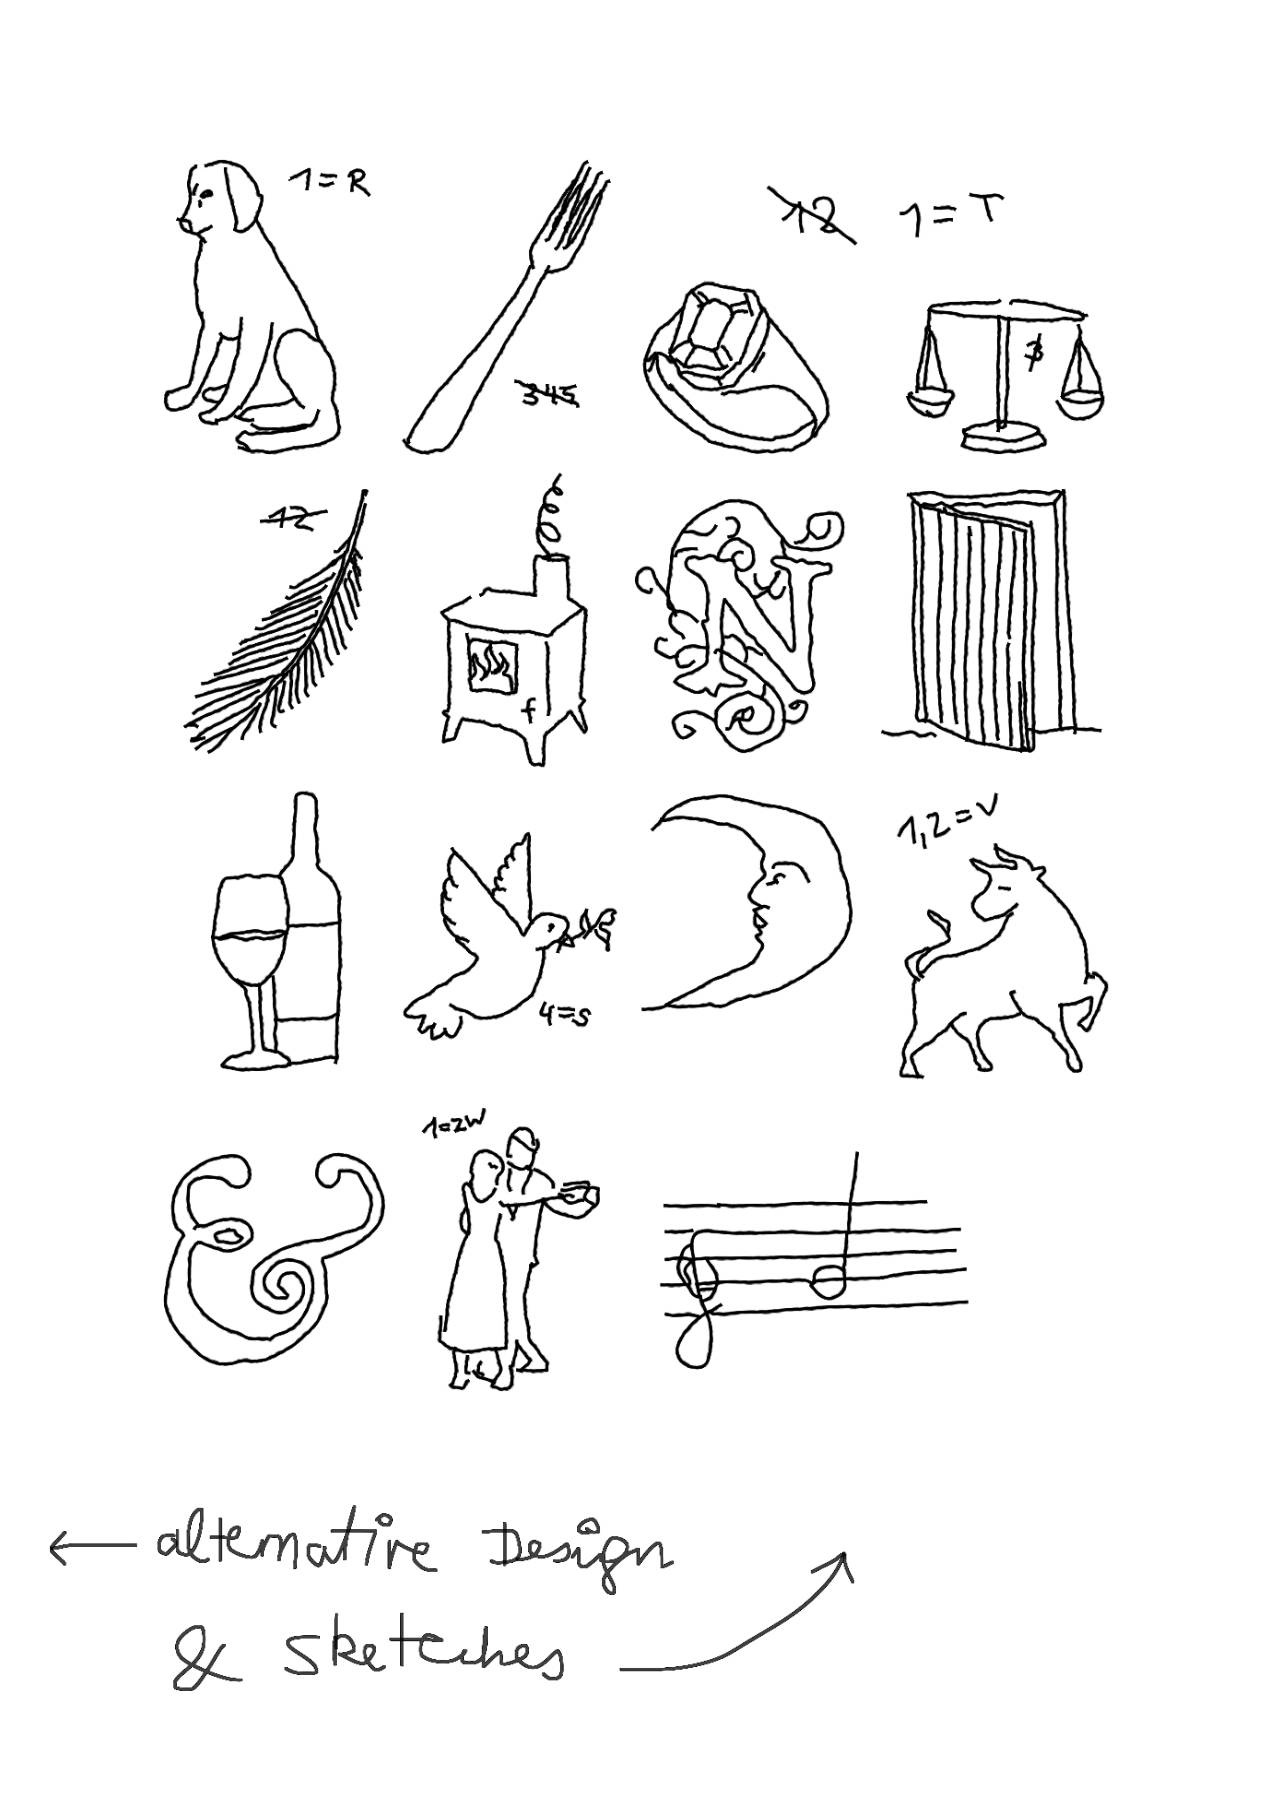 1=R
12 1=T
345
3
12
f
N
1,2=V
4=s
&
1=zw
alternative Design
& Sketches